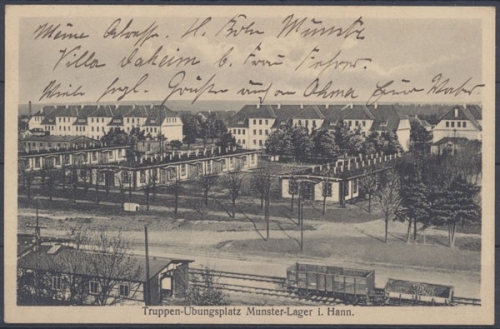 Meine Adresse. H. Köln Munster
Villa daheim b. Frau
Viele hrzl. Grüße auch an Oma
Truppen-Übungsplatz Munster-Lager i. Hann.